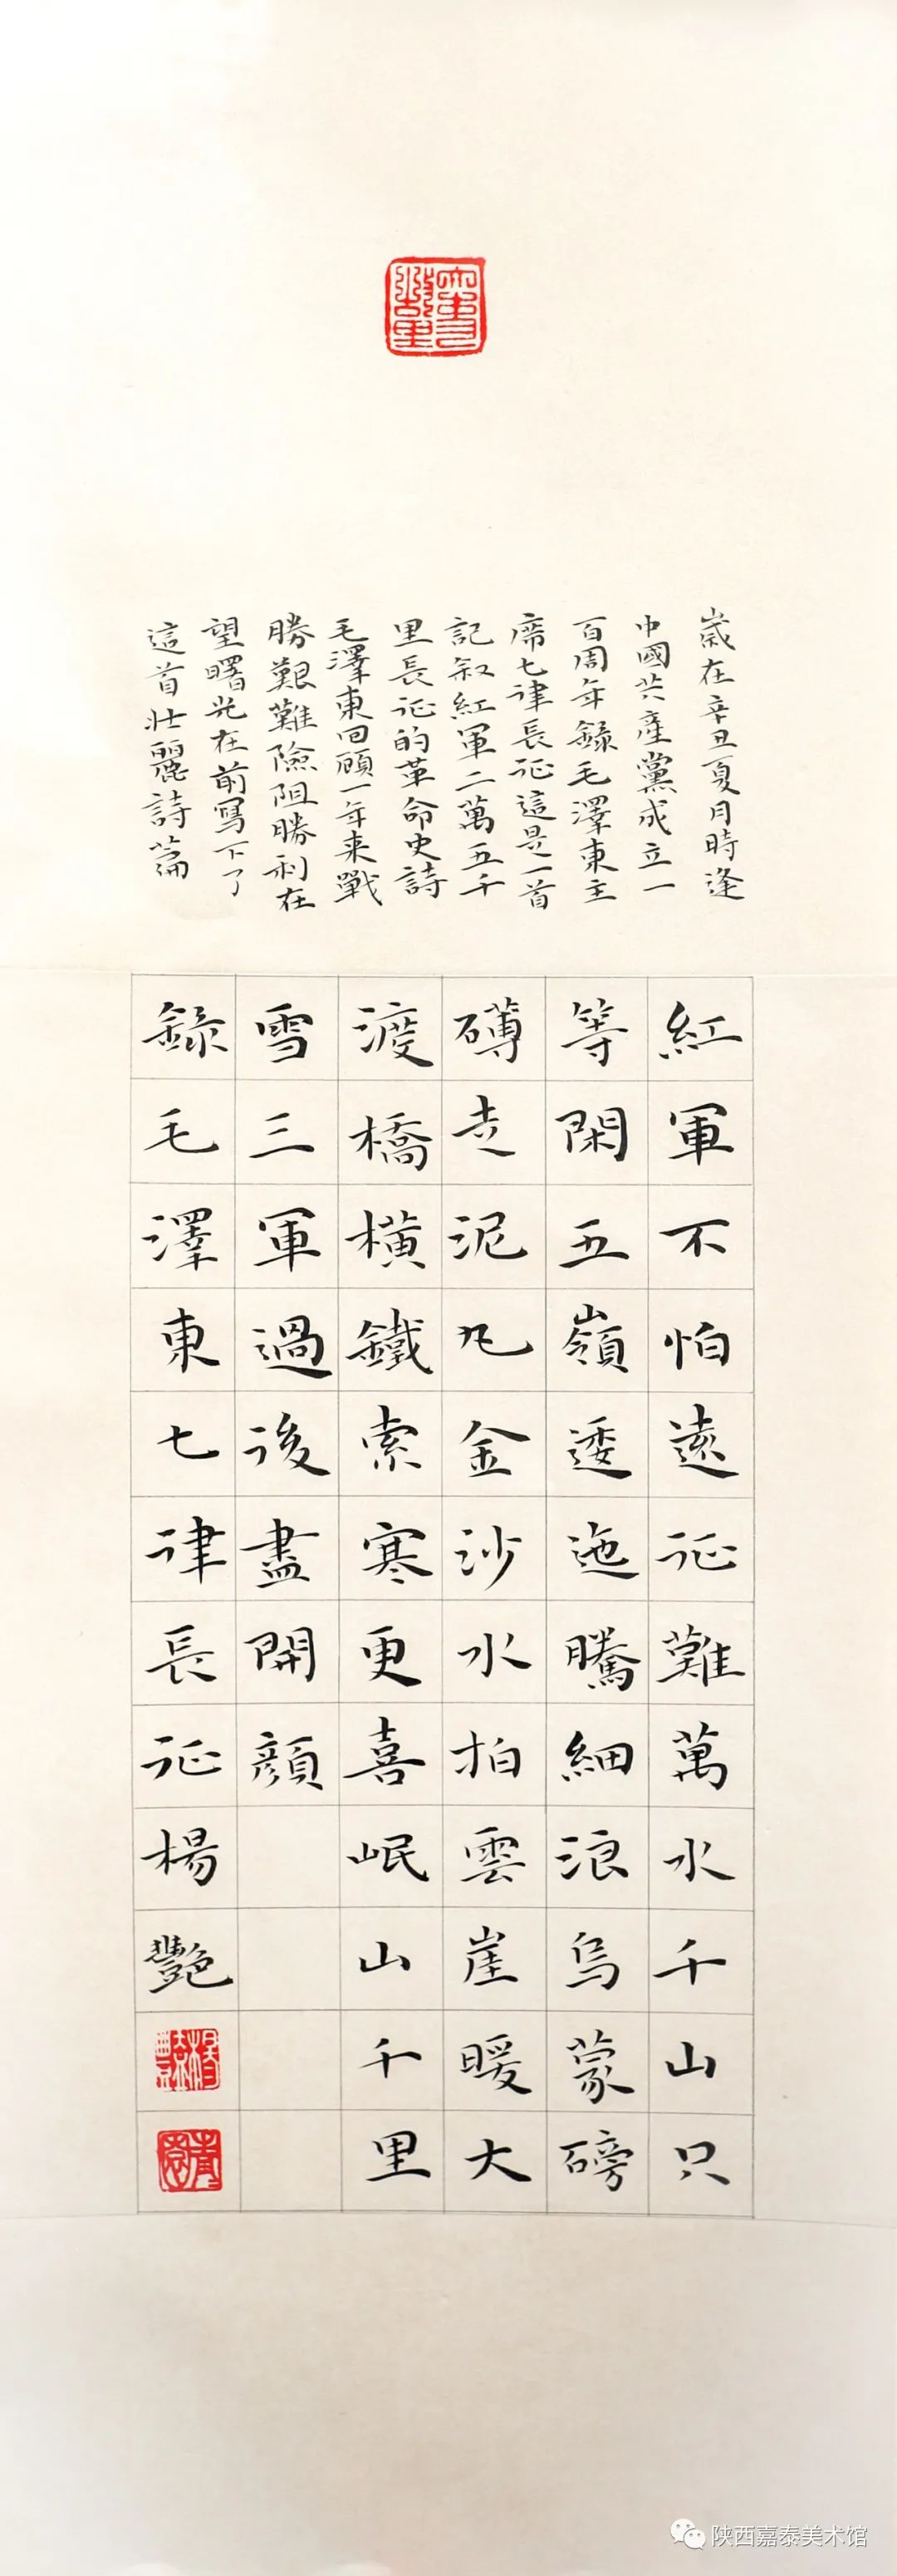 歲在辛丑夏月時逢
中國共產黨成立一
百周年錄毛澤東主
席七律長征這是一首
記叙紅軍二萬五千
里長征的革命史詩
毛澤東回顧一年来戰
勝艱難險阻勝利在
望曙光在前寫下了
這首壯麗詩篇
紅軍不怕遠征難萬水千山只
等閑五嶺逶迤騰細浪烏蒙磅
礴走泥丸金沙水拍雲崖暖大
渡橋橫鐵索寒更喜岷山千里
雪三軍過後盡開顏
錄毛澤東七律長征楊艷
陕西嘉泰美术馆